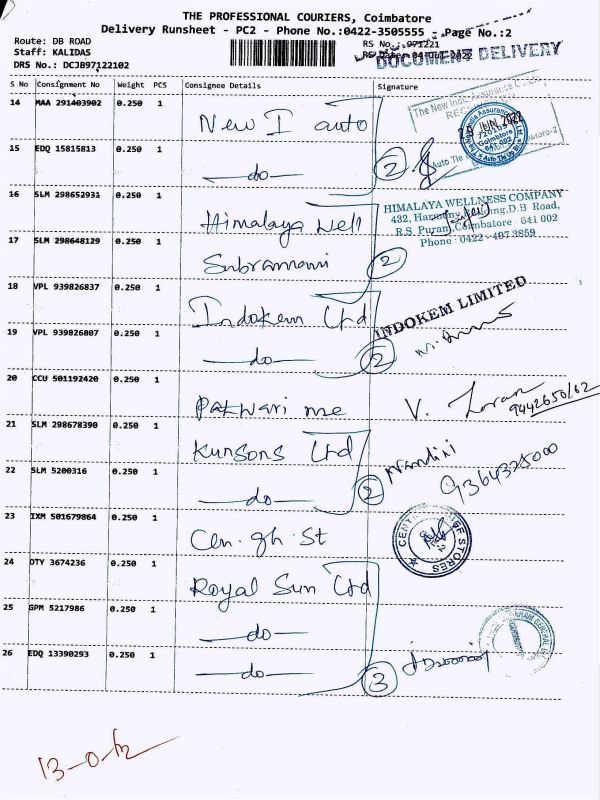 THE PROFESSIONAL COURIERS, Coimbatore
Delivery Runsheet - PC2 - Phone No.:0422-3505555 - Page No.:2
Route: DB ROAD
RS No.: 971221
Staff: KALIDAS
DOCUMENT DELIVERY
DRS No.: DCJB97122102
S No Consignment No Weight PCS Consignee Details Signature
14 MAA 291403902 0.250 1 New I auto
15 EDQ 15815813 0.250 1 -do- 2
16 SLM 298652931 0.250 1 Himalaya Well
HIMALAYA WELLNESS COMPANY
432, Harmony Building, D.B Road,
R.S. Puram, Coimbatore - 641 002
Phone : 0422 - 497 3859
17 SLM 298648129 0.250 1 Subramani 2
18 VPL 939826837 0.250 1 Indokem Ltd
INDOKEM LIMITED
19 VPL 939826807 0.250 1 -do- 2
20 CCU 501192420 0.250 1 V.
9442650162
21 SLM 298678390 0.250 1 Kunsons Ltd
Nandini
9364325000
22 SLM 5200316 0.250 1 -do- 2
23 IXM 501679864 0.250 1 Cen. gh. St
24 OTY 3674236 0.250 1 Royal Sun Ltd
25 GPM 5217986 0.250 1 -do-
26 EDQ 13390293 0.250 1 -do- 3
13-0-12